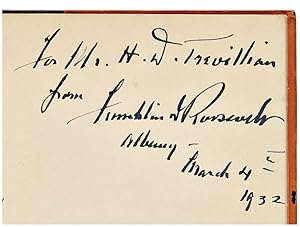 For Mr. H. D. Trevillian
from
Franklin D Roosevelt
Albany —
March 4th
1932